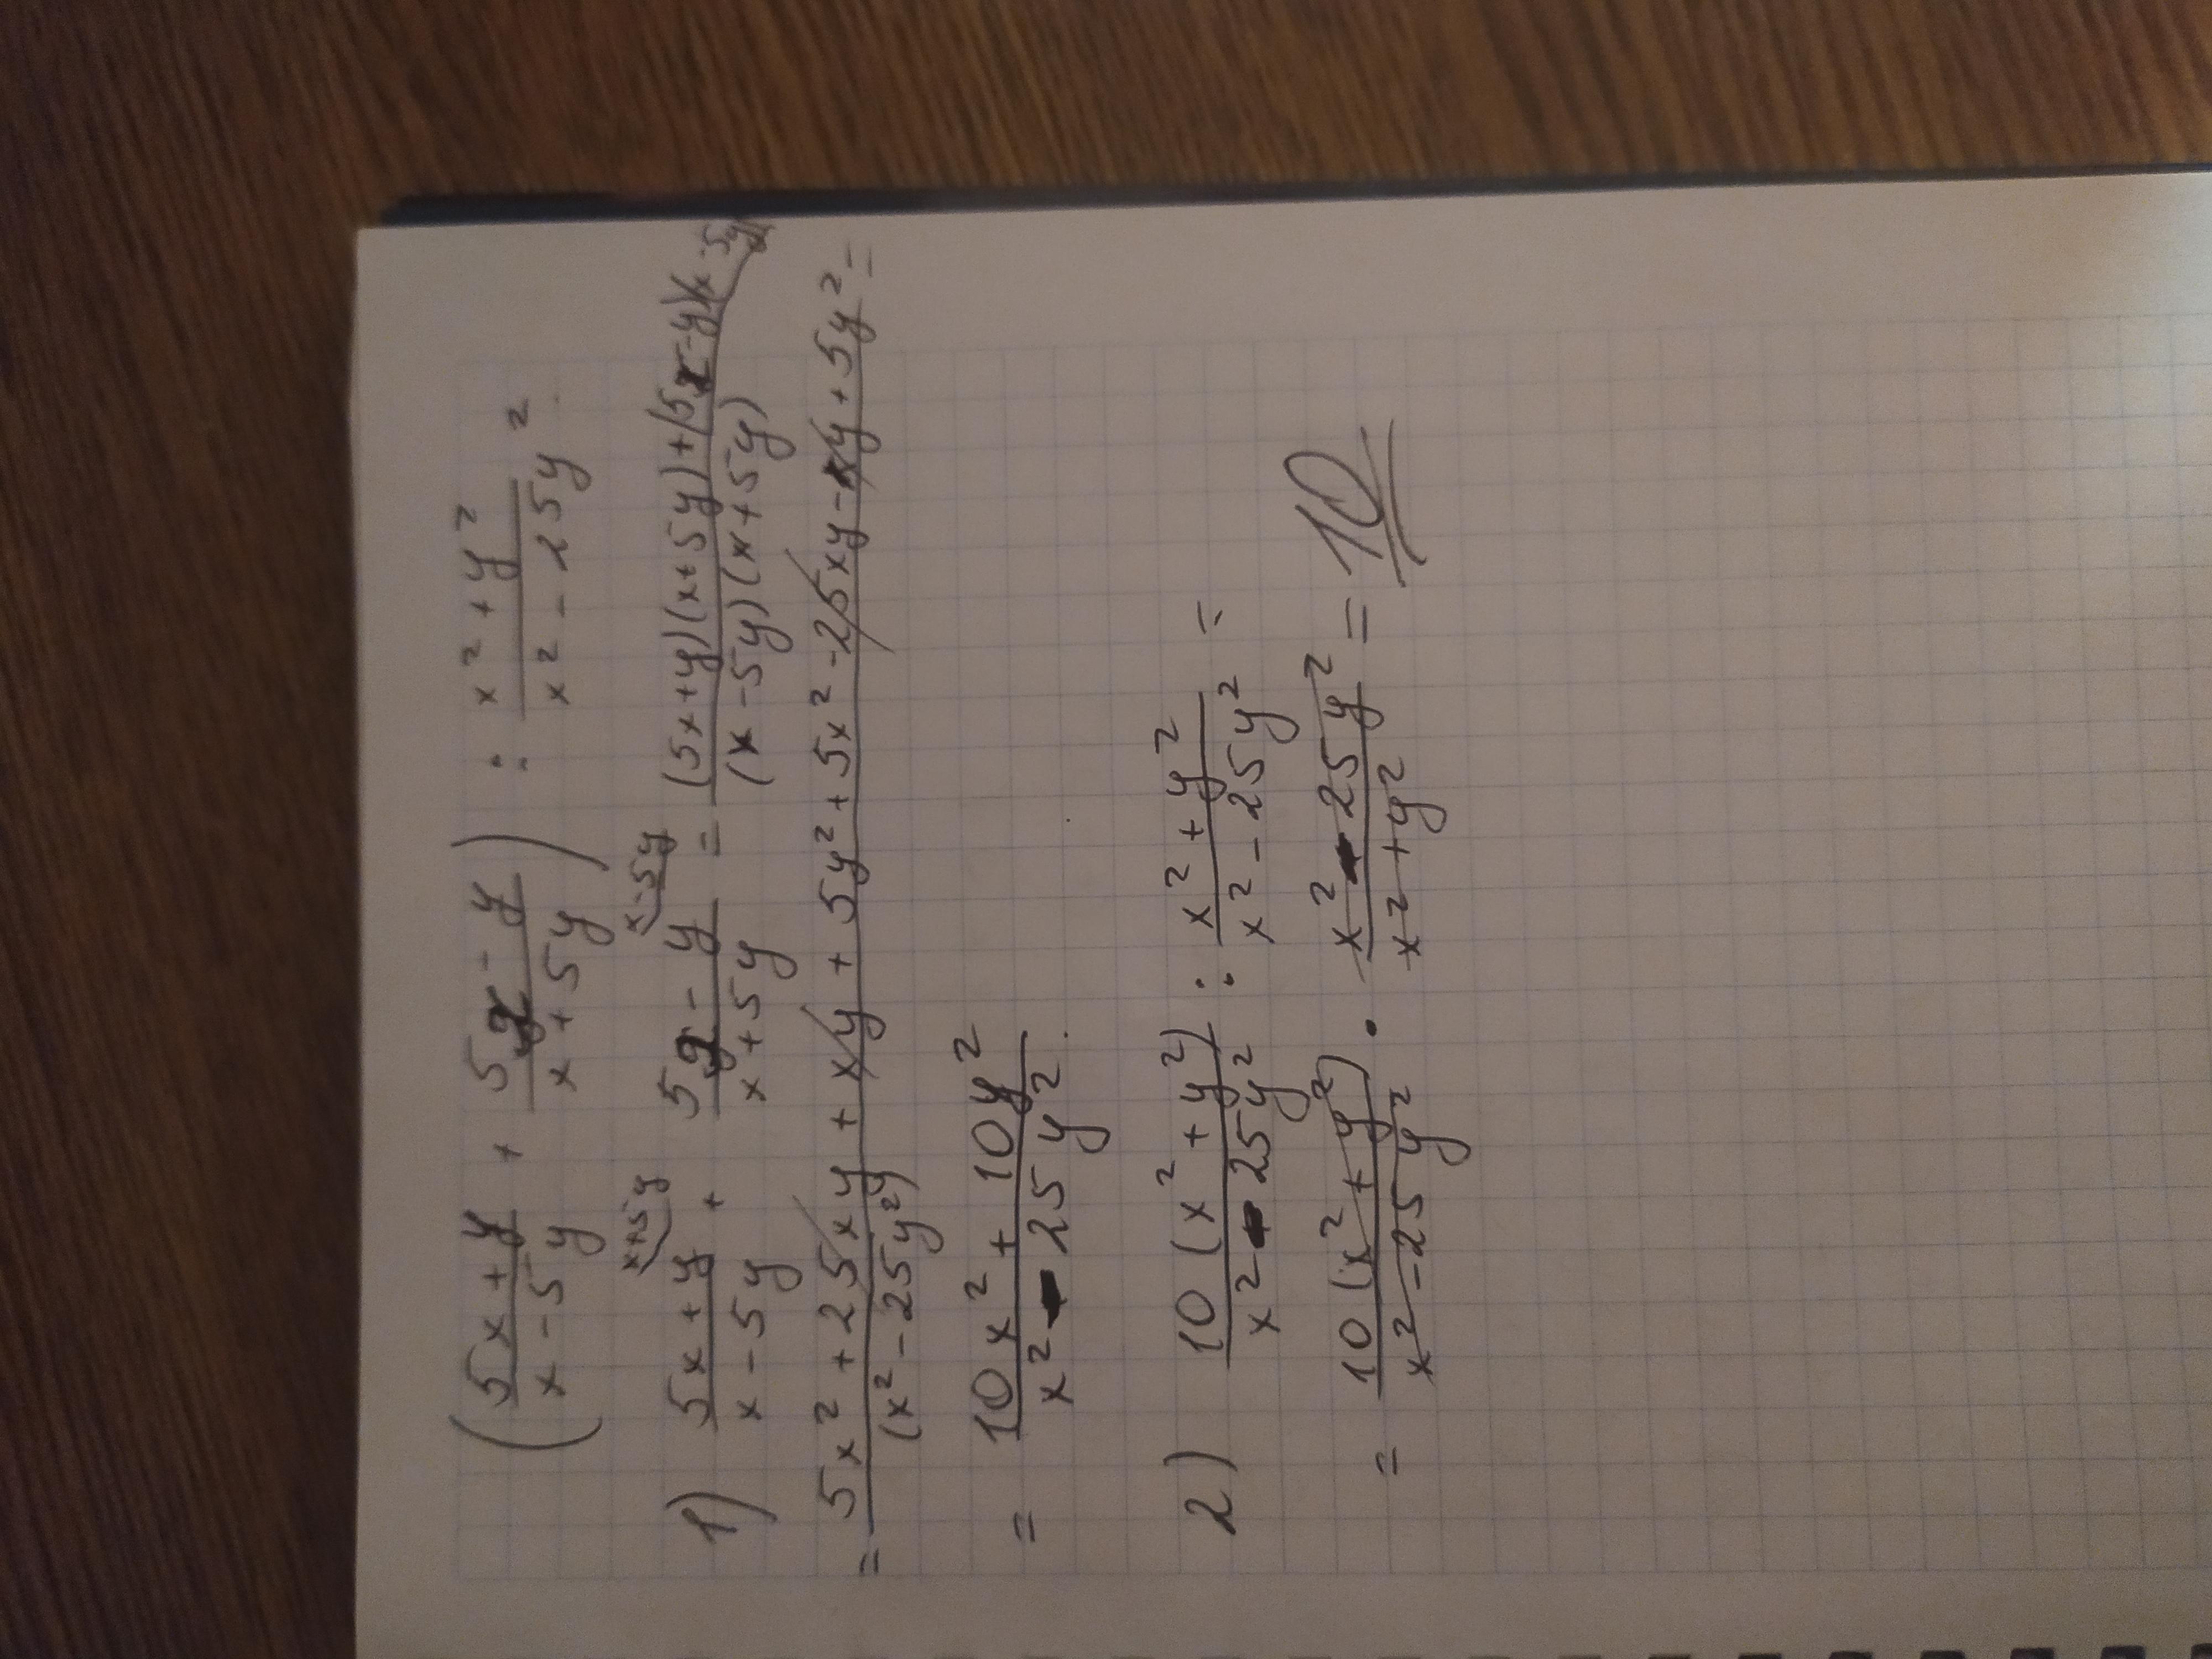 (5x+y/x-5y + 5x-y/x+5y) : x²+y²/x²-25y².
1) 5x+y/x-5y (x+5y + 5x-y/x+5y (x-5y = (5x+y)(x+5y)+(5x-y)(x-5y)/(x-5y)(x+5y)
= 5x²+25xy+xy+5y²+5x²-25xy-xy+5y²/(x²-25y²) =
= 10x²+10y²/x²-25y².
2) 10(x²+y²)/x²-25y² : x²+y²/x²-25y² =
= 10(x²+y²)/x²-25y² · x²-25y²/x²+y² = 10